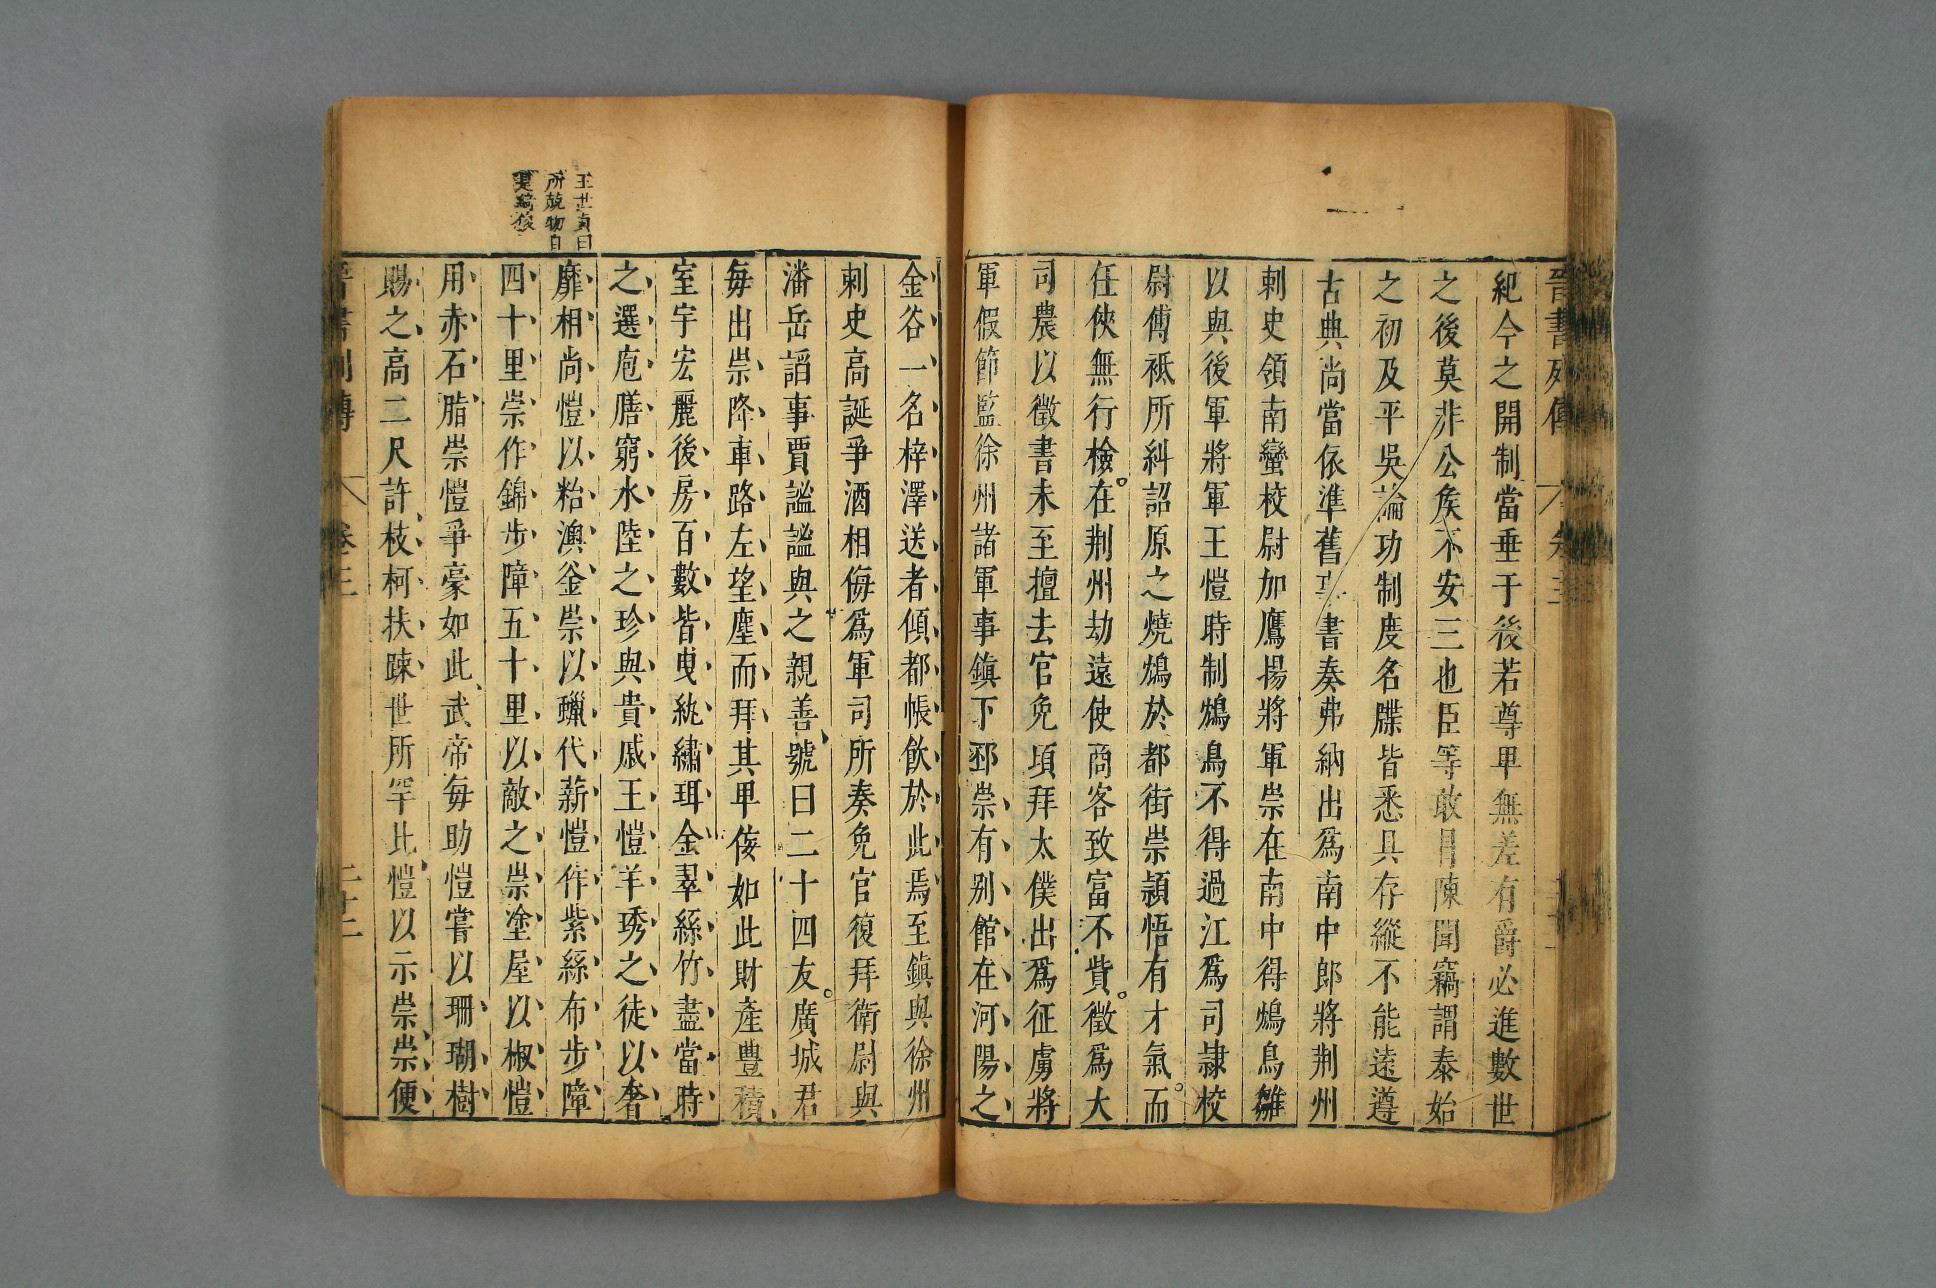 晉書列傳 卷三
紀今之開制當垂于後若尊卑無差有爵必進數世
之後莫非公矦不安三也臣等敢冒陳聞竊謂泰始
之初及平吳論功制度名牒皆悉具存縱不能遠遵
古典尚當依準舊事書奏弗納出爲南中郎將荆州
刺史領南蠻校尉加鷹揚將軍崇在南中得鴆鳥雛
以與後軍將軍王愷時制鴆鳥不得過江爲司隷校
尉傅祗所糾詔原之燒鴆於都街崇頴悟有才氣而
任俠無行檢在荆州劫遠使商客致富不貲徵爲大
司農以徵書未至擅去官免頃拜太僕出爲征虜將
軍假節監徐州諸軍事鎮下邳崇有别館在河陽之
金谷一名梓澤送者傾都帳飮於此焉至鎮與徐州
刺史高誕爭酒相侮爲軍司所奏免官復拜衛尉與
潘岳謟事賈謐謐與之親善號曰二十四友廣城君
每出崇降車路左望塵而拜其卑佞如此財產豐積
室宇宏麗後房百數皆曳紈繡珥金翠絲竹盡當時
之選庖膳窮水陸之珍與貴戚王愷羊琇之徒以奢
靡相尚愷以粘澳釜崇以蠟代薪愷作紫絲布步障
四十里崇作錦步障五十里以敵之崇塗屋以椒愷
用赤石脂崇愷爭豪如此武帝每助愷嘗以珊瑚樹
賜之高二尺許枝柯扶踈世所罕比愷以示崇崇便
王世貞曰
所競物自
晉書列傳 卷三 二十二